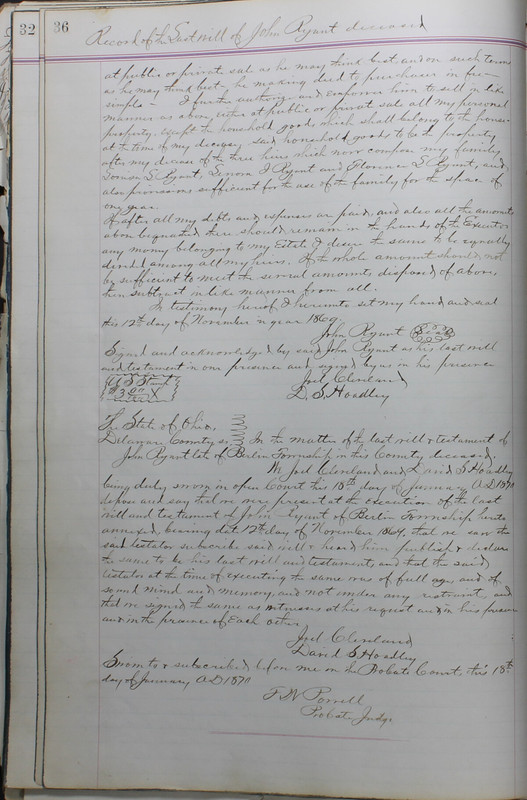 32
36
Record of the Last Will of John Ryant deceased
at public or private sale as he may think best and on such terms
as he may think best he making deed to purchaser in fee
simple — I further authorize and Empower him to sell in like
manner as above either at public or private sale all my personal
property except the household goods which shall belong to the house
at the time of my decease, said household goods to be the property
after my decease of the three heirs which now compose my family
Louisa S Ryant, Lenora J Ryant and Florence D Ryant, and
also provisions sufficient for the use of the family for the space of
one year.
If after all my debts and expenses are paid, and also all the amounts
above bequeathed there should remain in the hands of the Executor
any money belonging to my Estate I desire the same to be equally
divided among all my heirs. If the whole amount should not
be sufficient to meet the several amounts disposed of above,
then subtract in like manner from all.
In testimony hereof I hereunto set my hand and seal
this 12th day of November in year 1869.
John Ryant Seal
Signed and acknowledged by said John Ryant as his last will
and testament in our presence and signed by us in his presence
Joel Cleveland
D. S. Hoadley
U S Stamp
$3.00
The State of Ohio,
Delaware County ss, In the matter of the last will & testament of
John Ryant late of Berlin Township in this County deceased.
We Joel Cleveland and David S Hoadley
being duly sworn in open Court this 18th day of January A.D 1870
depose and say that we were present at the execution of the last
will and testament of John Ryant of Berlin Township hereto
annexed, bearing date 12th day of November 1869, that we saw the
said testator subscribe said will & heard him publish & declare
the same to be his last will and testament, and that the said
testator at the time of executing the same was of full age, and of
sound mind and memory, and not under any restraint, and
that we signed the same as witnesses at his request and in his presence
and in the presence of Each other.
Joel Cleveland
David S Hoadley
Sworn to & subscribed before me in the Probate Court, this 18th
day of January A.D 1870
T W Powell
Probate Judge